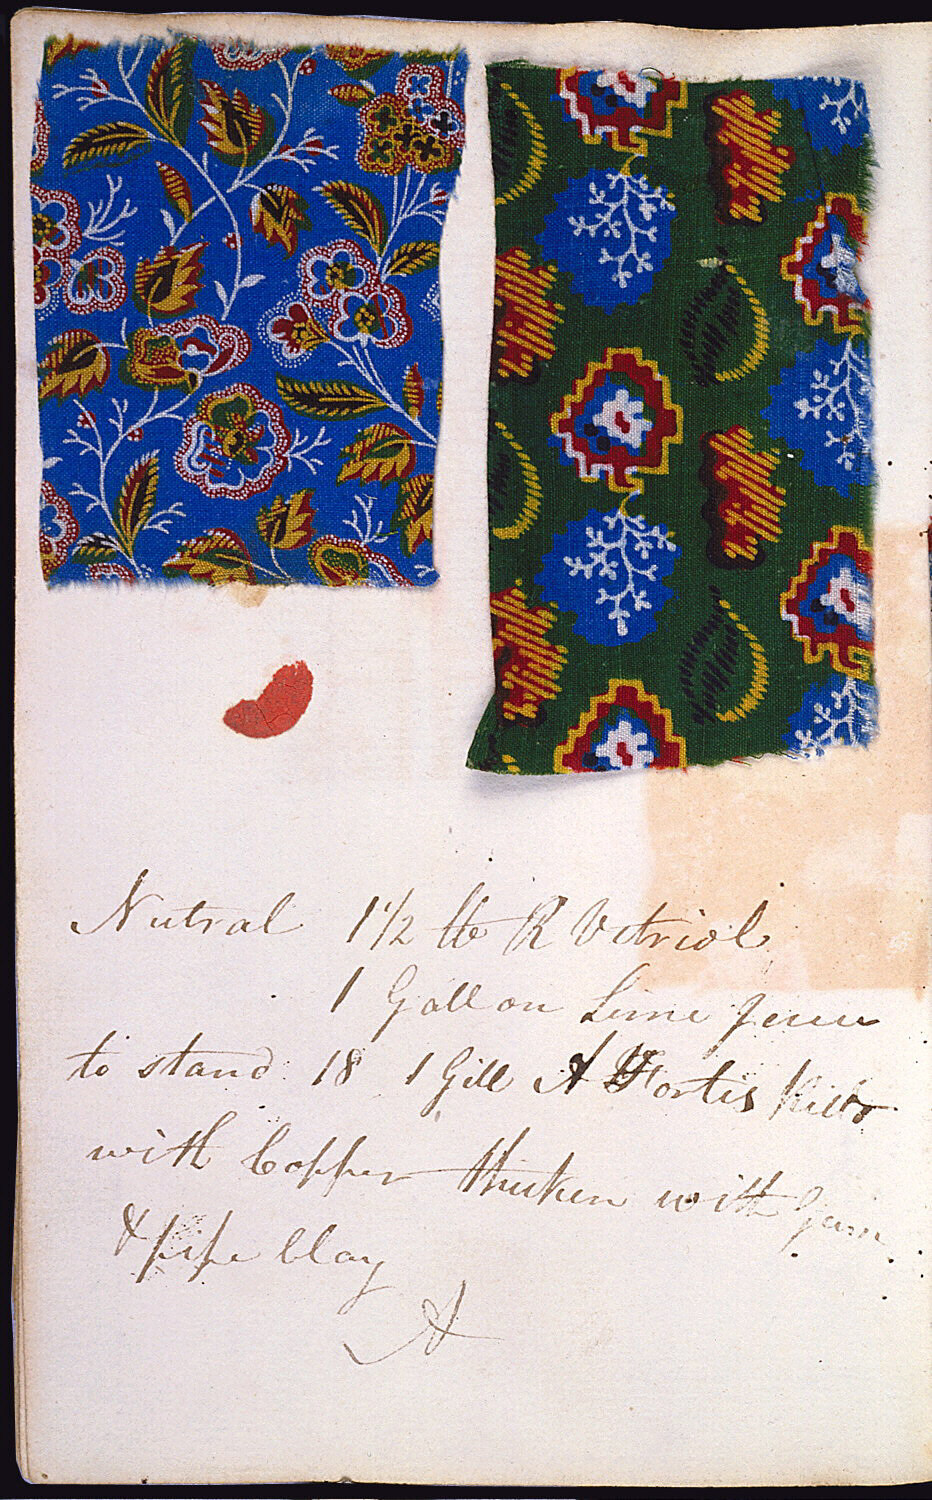 Nutral 1 1/2 lb R Vitriol
1 Gallon Lime
to stand 18 1 Gill A Fortis
with Copper thicken with Gum
& pipe Clay
A